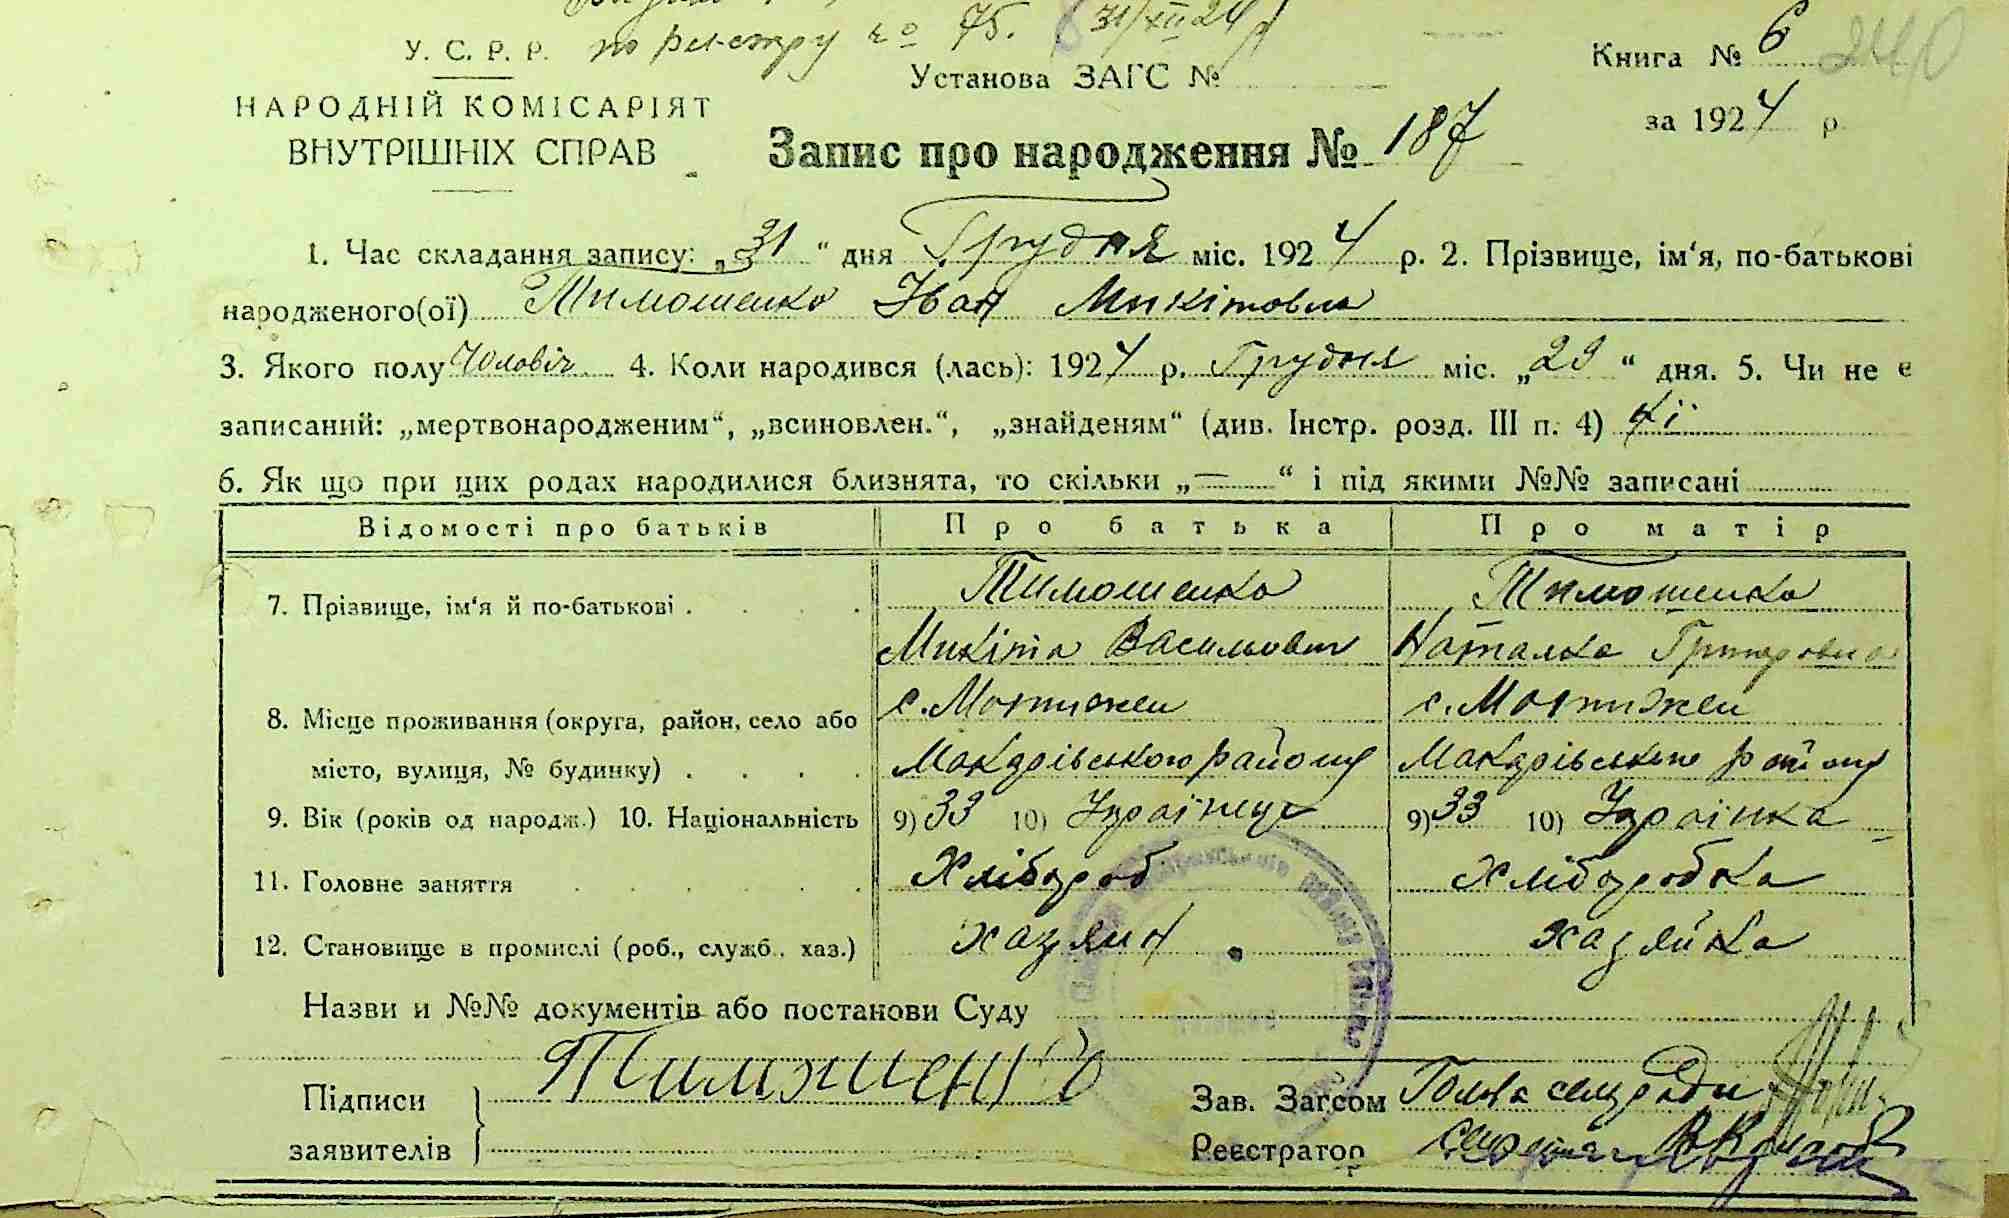 по реєстру № 75. 31/XII 24 р
У. С. Р. Р.
НАРОДНІЙ КОМІСАРІЯТ
ВНУТРІШНІХ СПРАВ
Установа ЗАГС №
Книга № 6 240
за 1924 р.
Запис про народження № 187
1. Час складання запису: „31“ дня Грудня міс. 1924 р. 2. Прізвище, ім‘я, по-батькові
народженого(ої) Тимошенко Іван Микітович
3. Якого полу Чоловіч. 4. Коли народився (лась): 1924 р. Грудня міс. „29“ дня. 5. Чи не є
записаний: „мертвонародженим“, „всиновлен.“, „знайденям“ (див. Інстр. розд. III п. 4) Ні
6. Як що при цих родах народилися близнята, то скільки „—“ і під якими №№ записані
Відомості про батьків Про батька Про матір
7. Прізвище, ім‘я й по-батькові . . . . Тимошенко Тимошенко
Микіта Васильович Наталка Григоровна
8. Місце проживання (округа, район, село або с. Мотижен с. Мотижен
місто, вулиця, № будинку) . . . . Макарівського району Макарівського району
9. Вік (років од народж.) 10. Національність 9) 33 10) Українець 9) 33 10) Українка
11. Головне заняття . . . . . . Хлібороб Хліборобка
12. Становище в промислі (роб., служб., хаз.) хазяин хазяйка
Назви и №№ документів або постанови Суду
Підписи
заявителів
Тимошенко
Зав. Загсом Голова сельради
Реєстратор